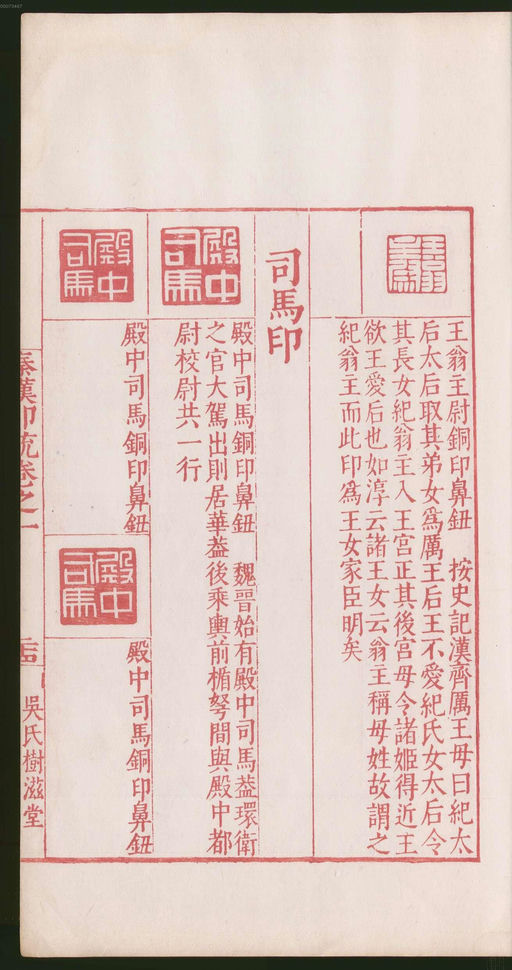 00073467
王翁主尉銅印鼻鈕　按史記漢齊厲王母曰紀太
后太后取其弟女爲厲王后王不愛紀氏女太后令
其長女紀翁主入王宮正其後宮母令諸姬得近王
欲王愛后也如淳云諸王女云翁主稱母姓故謂之
紀翁主而此印爲王女家臣明矣
司馬印
殿中司馬
殿中司馬銅印鼻鈕　魏晉始有殿中司馬葢環衛
之官大駕出則居華葢後乘輿前楯弩間與殿中都
尉校尉共一行
殿中司馬
殿中司馬銅印鼻鈕
殿中司馬
殿中司馬銅印鼻鈕
秦漢印統卷之一
吳氏樹滋堂